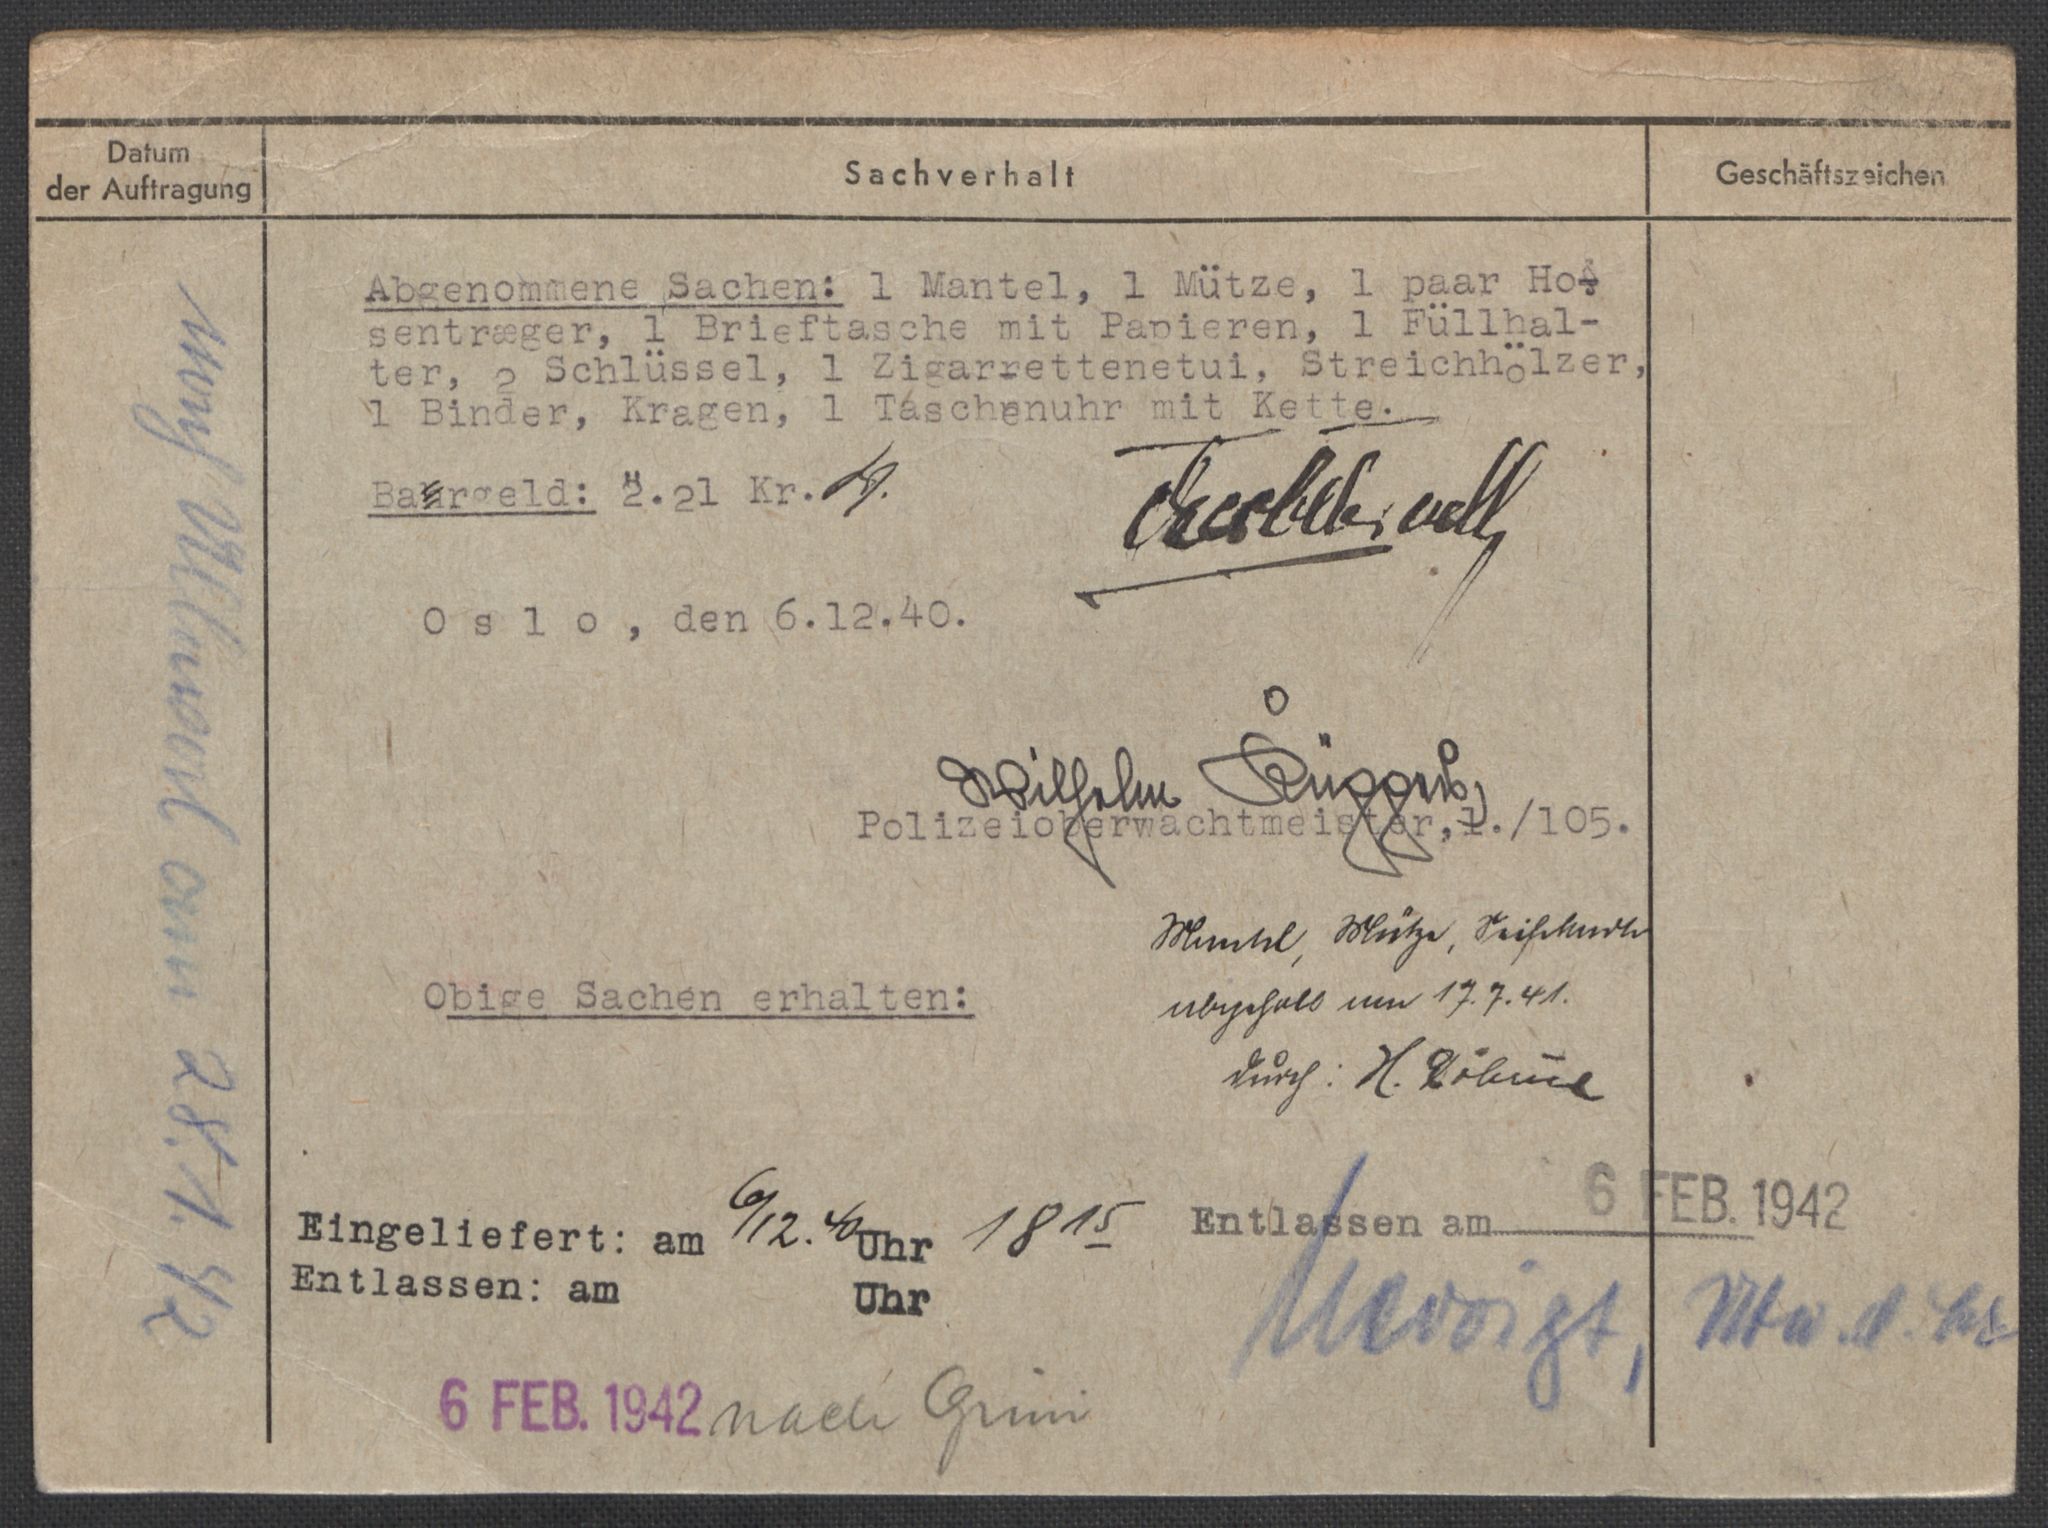 Datum
der Auftragung
Sachverhalt
Geschäftszeichen
Abgenommene Sachen: 1 Mantel, 1 Mütze, 1 paar Ho-
sentræger, 1 Brieftasche mit Papieren, 1 Füllhal-
ter, 2 Schlüssel, 1 Zigarrettenetui, Streichhölzer,
1 Binder, Kragen, 1 Taschenuhr mit Kette.
Baargeld: 2.21 Kr.
O s l o , den 6.12.40.
Wilhelm
Polizeioberwachtmeister, 1./105.
Mantel, Mütze,
Obige Sachen erhalten:
abgeholt am 17.7.41.
durch: H. Böhme
Eingeliefert: am 6/12.40 Uhr 18 15
Entlassen am 6 FEB. 1942
Entlassen: am Uhr
6 FEB. 1942 nach Grini
nach Akersvert am 28.1.42